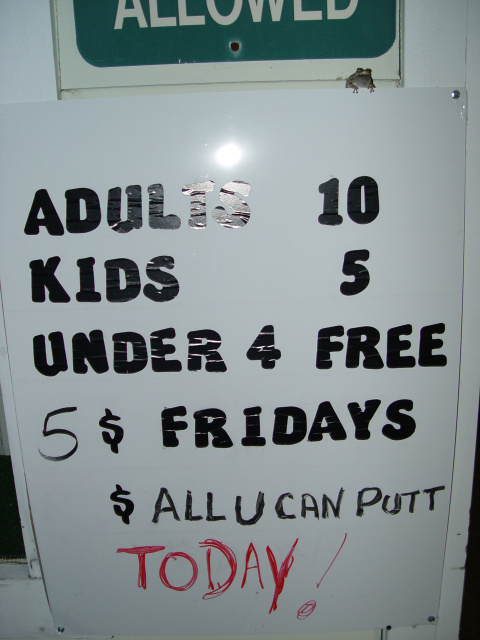 ALLOWED
ADULTS 10
KIDS 5
UNDER 4 FREE
5 $ FRIDAYS
$ ALL U CAN PUTT
TODAY!